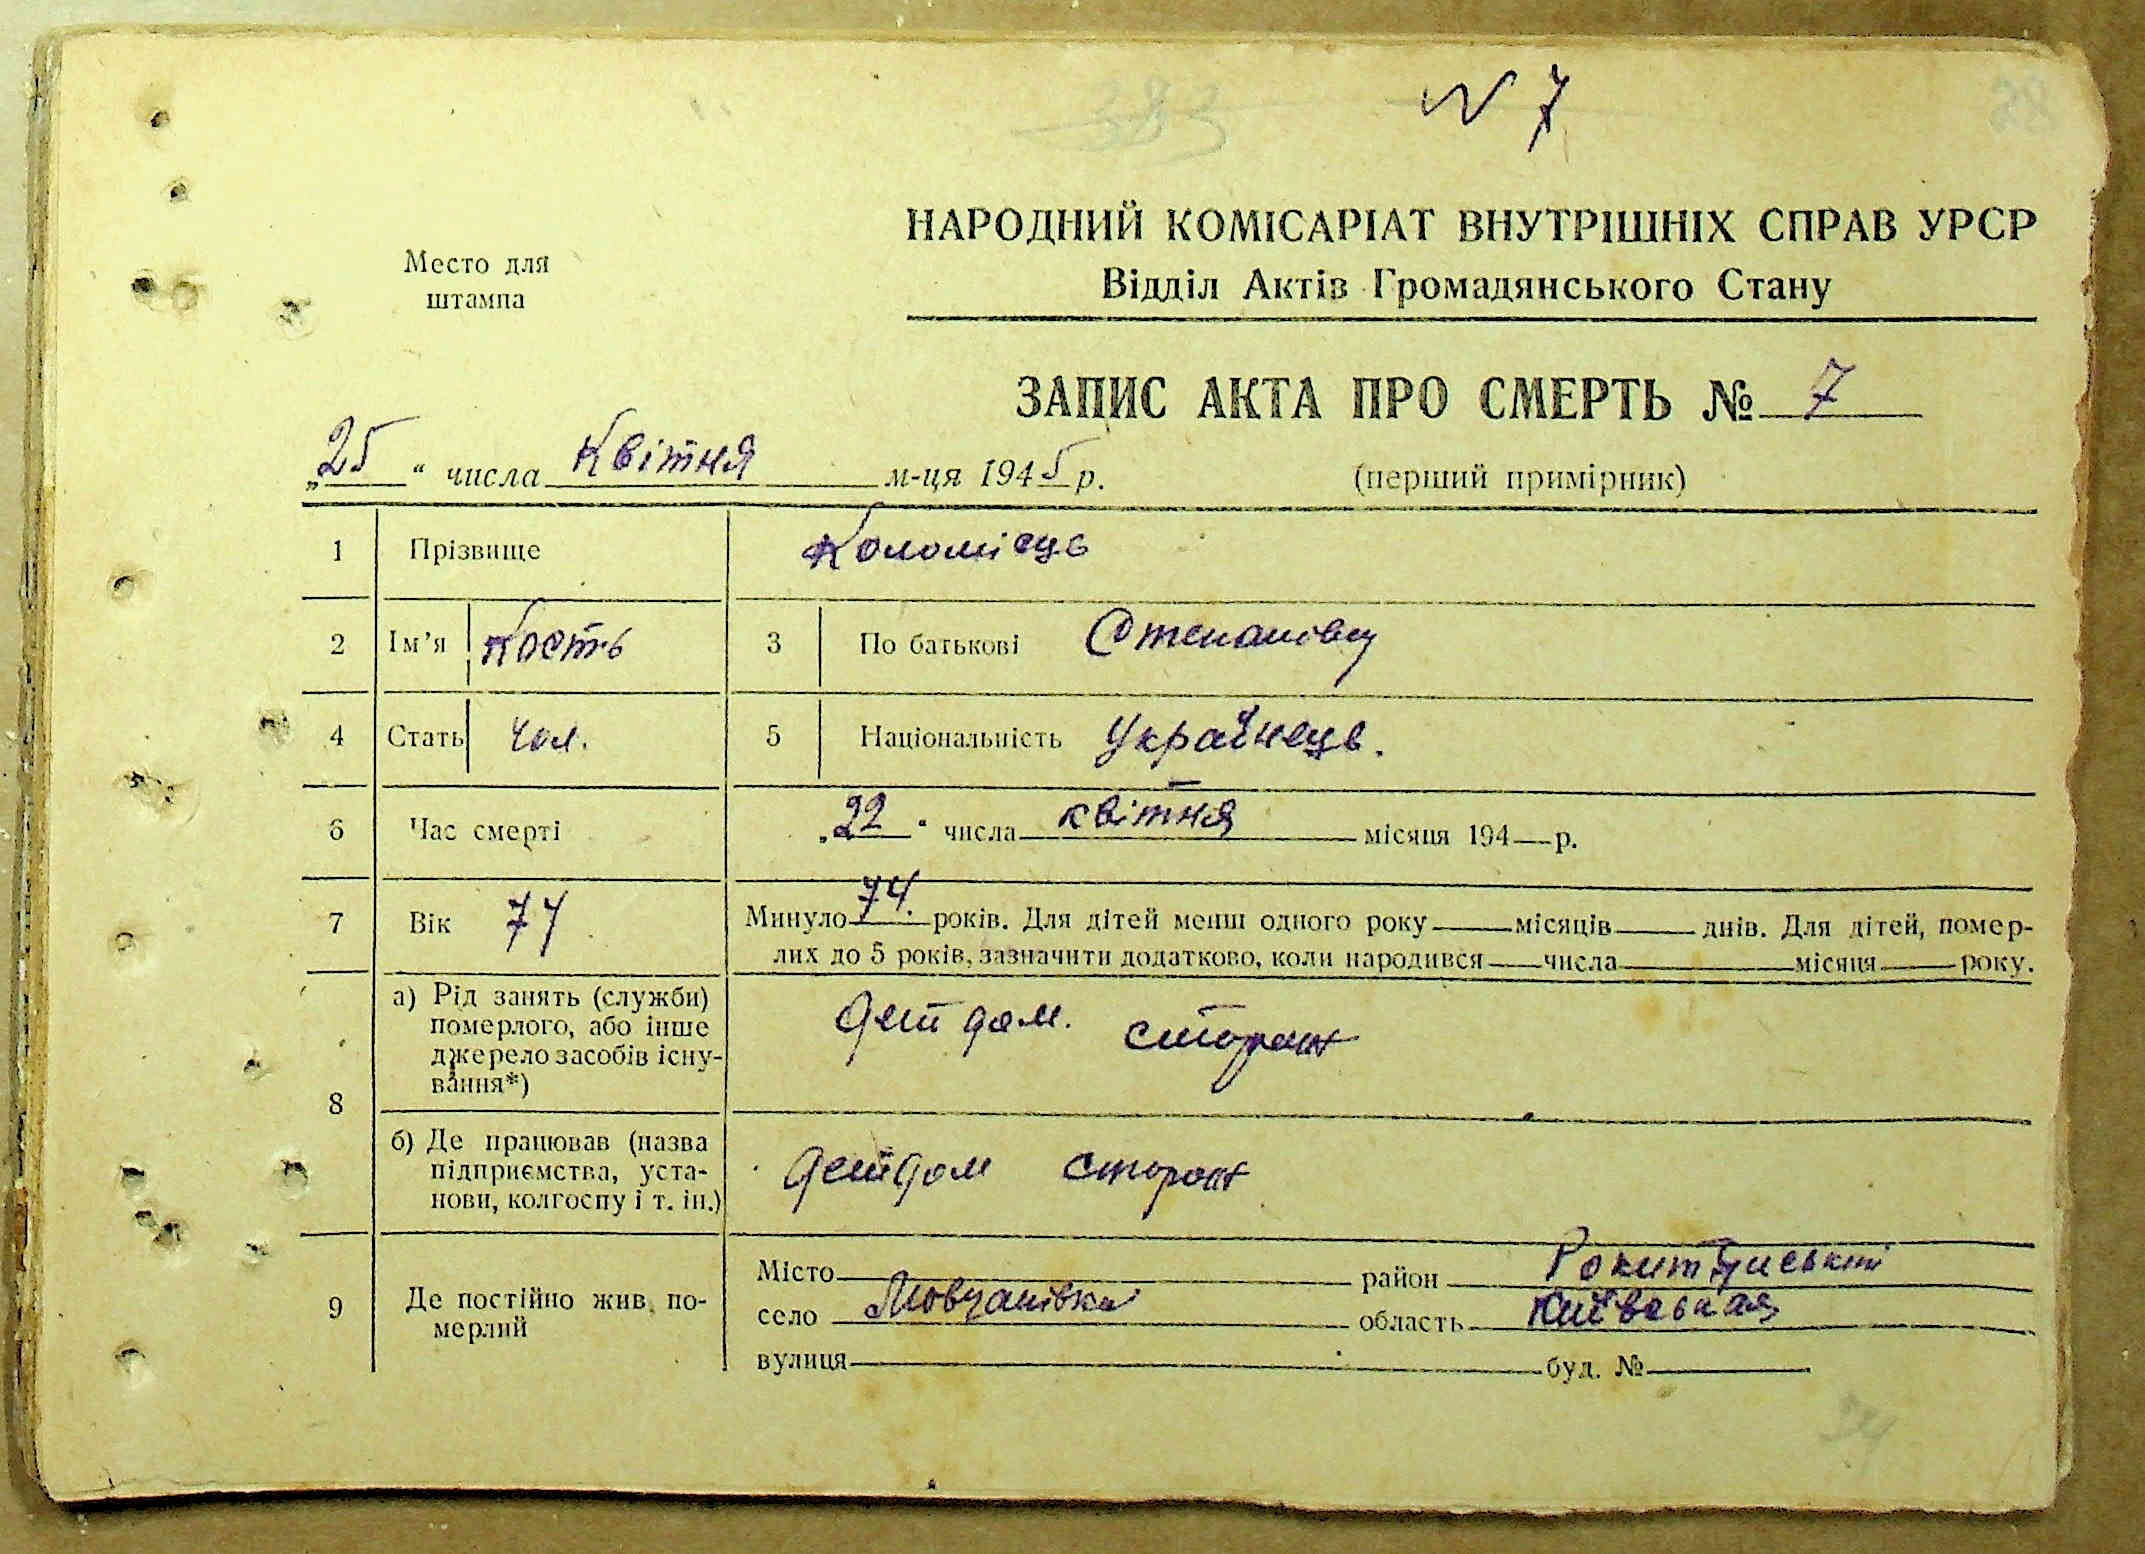 383
N 7
НАРОДНИЙ КОМІСАРІАТ ВНУТРІШНІХ СПРАВ УРСР
Відділ Актів Громадянського Стану
Место для
штампа
ЗАПИС АКТА ПРО СМЕРТЬ № 7
„25“ числа Квітня м-ця 1945 р.
(перший примірник)
1 Прізвище Коломієць
2 Ім'я Кость 3 По батькові Степанівич
4 Стать чол. 5 Національність Українець.
6 Час смерті „22“ числа квітня місяця 194—р.
7 Вік 74 Минуло 74. років. Для дітей менш одного року місяців днів. Для дітей, помер-
лих до 5 років, зазначити додатково, коли народився числа місяця року.
8
а) Рід занять (служби)
померлого, або інше
джерело засобів існу-
вання*)
Дет дом. сторож
б) Де працював (назва
підприємства, уста-
нови, колгоспу і т. ін.)
Детдом сторож
9 Де постійно жив по-
мерлий
Місто район Рокитнянський
село Мовчанівка область Київськая
вулиця буд. №